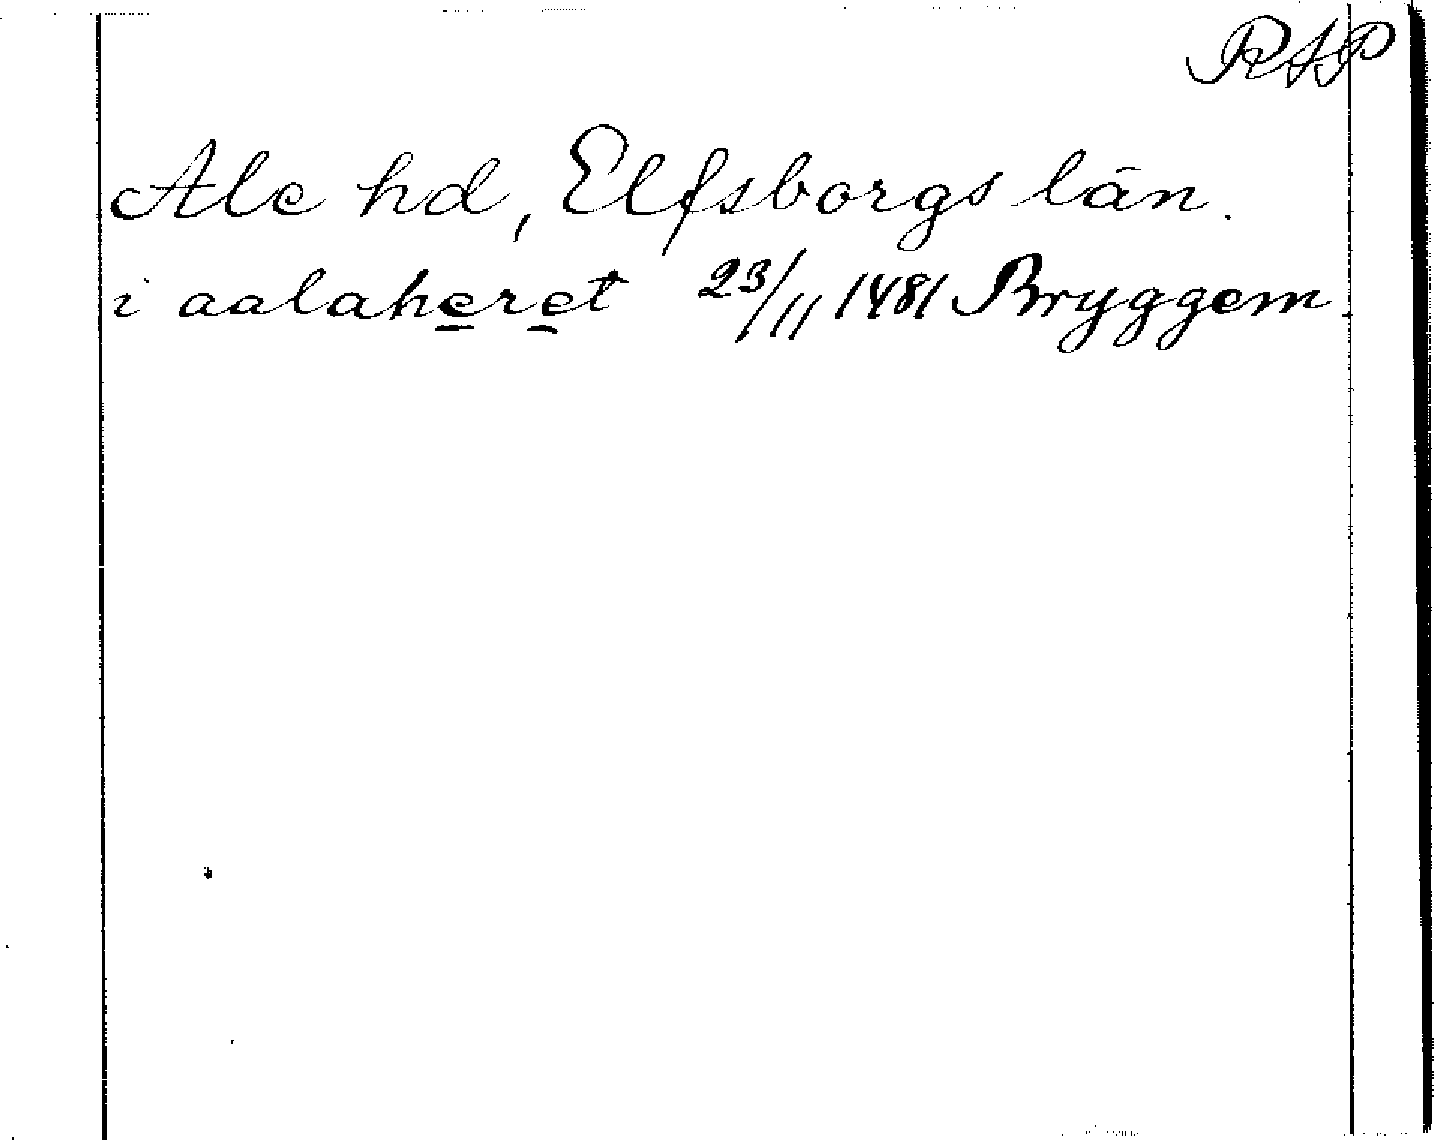 RAP
Ale hd, Elfsborgs län.
i aalaheret 23/11 1481 Bryggem